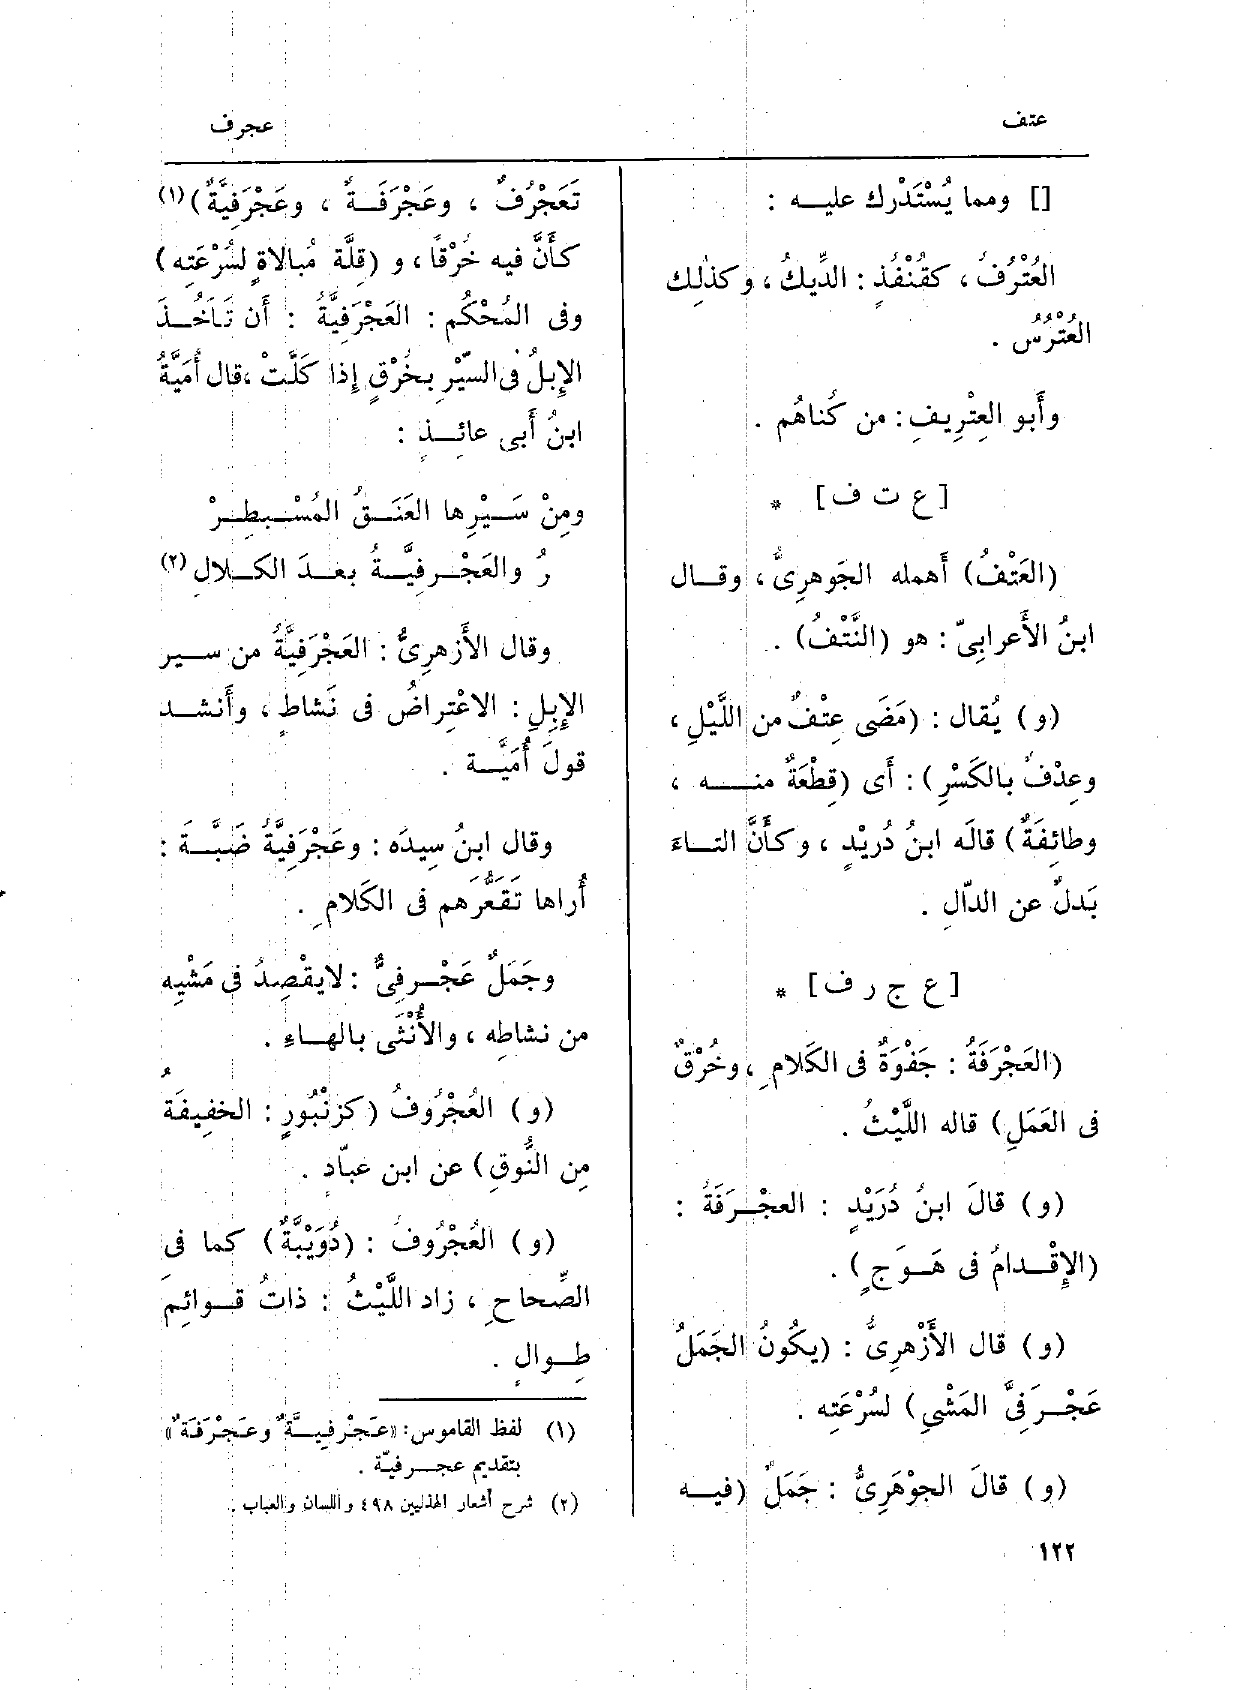 عتف
عجرف
[] ومما يُسْتَدْرك عليــه :
العُتْرُفُ ، كقُنْفُذٍ : الدِّيكُ ، وكذٰلِك
العُتْرُسُ .
وأَبو العِتْرِيفِ : من كُناهُم .
[ ع ت ف ] *
(العَتْفُ) أَهمله الجَوهرِىُّ ، وقــال
ابنُ الأَعرابِىّ : هو (النَّتْفُ) .
(و) يُقال : (مَضَى عِتْفٌ من اللَّيْلِ ،
وعِدْفٌ بالكَسْرِ) : أَى (قِطْعَةٌ منــه ،
وطائِفَةٌ) قالَه ابنُ دُريْدٍ ، وكأَنَّ التــاءَ
بَدلٌ عن الدّالِ .
[ ع ج ر ف ] *
(العَجْرَفَةُ : جَفْوَةٌ فى الكَلامِ ، وخُرْقٌ
فى العَمَلِ) قاله اللَّيْثُ .
(و) قالَ ابنُ دُرَيْدٍ : العجْــرَفَةُ :
(الإِقْــدامُ فى هَــوَجٍ) .
(و) قال الأَزْهرِىُّ : (يكُونُ الجَمَلُ
عَجْــرَفِىَّ المَشْىِ) لسُرْعَتِه .
(و) قالَ الجوْهَرِىُّ : جَمَلٌ (فيــه
تَعَجْرُفٌ ، وعَجْرَفَــةٌ ، وعَجْرَفِيَّةٌ) (١)
كأَنَّ فيه خُرْقًا ، و (قِلَّة مُبالاةٍ لسُرْعَتِه)
وفى المُحْكَم : العَجْرَفِيَّةُ : أَن تَأْخُــذَ
الإِبلُ فى السّيْرِ بخُرْقٍ إِذا كَلَّتْ ، قال أُمَيَّةُ
ابنُ أَبى عائِــذٍ :
ومِنْ سَــيْرِها العَنَــقُ المُسْــبطِــرْ
رُ والعَجْــرفِيَّــةُ بعــدَ الكــلالِ (٢)
وقال الأَزهرِىُّ : العَجْرَفِيَّةُ من ســير
الإِبِلِ : الاعْتِراضُ فى نَشاطٍ ، وأَنشــد
قولَ أُمَيَّــة .
وقال ابنُ سِيدَه : وعَجْرَفِيَّةُ ضَبَّــةَ :
أُراها تَقَعُّرَهم فى الكَلامِ .
وجَمَلٌ عَجْــرفِىٌّ : لايقْصِدُ فى مَشْيِه
من نشاطِه ، والأُنْثَى بالهــاءِ .
(و) العُجْرُوفُ (كزنْبُورٍ : الخفِيفَةُ
مِن النُّوقِ) عن ابن عبّادٍ .
(و) العُجْرُوفُ : (دُوَيْبَّةٌ) كما فى
الصِّحاحِ ، زاد اللَّيْثُ : ذاتُ قــوائِمَ
طِــوالٍ .
(١) لفظ القاموس : «عَجْرفِيــةٌ وعَجْرَفَةٌ»
بتقديم عجــرفيّة .
(٢) شرح أشعار الهذليين ٤٩٨ واللسان والعباب .
١٢٢